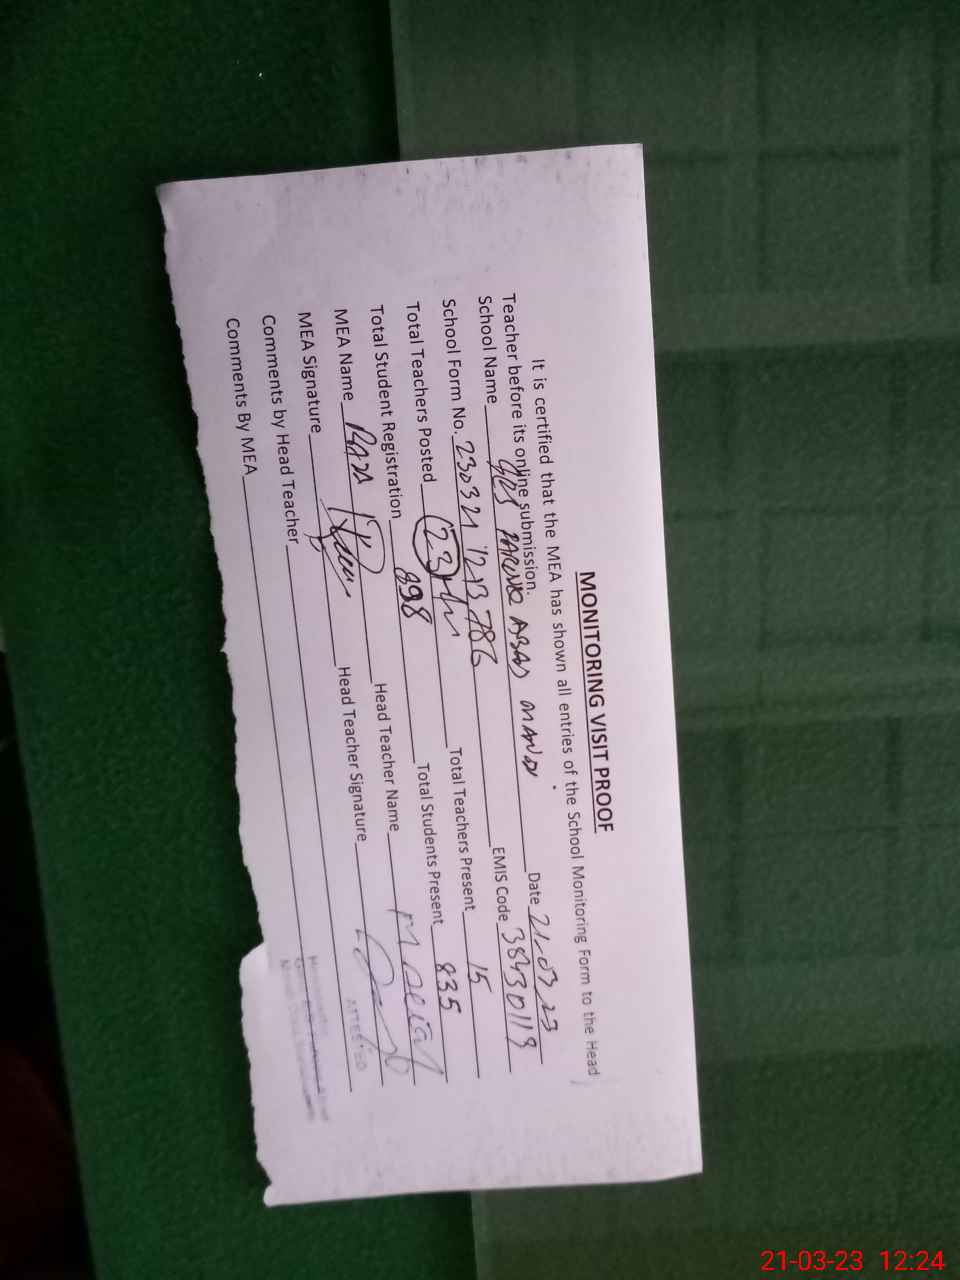 MONITORING VISIT PROOF
It is certified that the MEA has shown all entries of the School Monitoring Form to the Head
Teacher before its online submission.
School Name ABAD MANDI Date 21-03-23
School Form No. 230321 1213786 EMIS Code 38430119
Total Teachers Posted 23 Total Teachers Present 15
Total Student Registration 898 Total Students Present 835
MEA Name Head Teacher Name
MEA Signature Head Teacher Signature
ATTESTED
Comments by Head Teacher
Comments By MEA
21-03-23 12:24